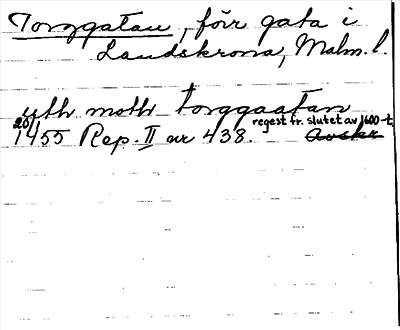 Torggatan, förr gata i
Landskrona, Malm. l.
uth moth torggaatan
20/1455 Rep. II nr 438. regest fr. slutet av 1600-t.
Avskr